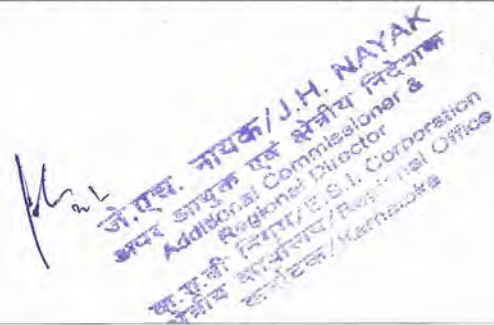 जे.एच. नायक/J.H. NAYAK
अपर आयुक्त एवं क्षेत्रीय निदेशक
Additional Commissioner &
Regional Director
क.रा.बी निगम/E.S.I. Corporation
क्षेत्रीय कार्यालय/Regional Office
कर्नाटका/Karnataka